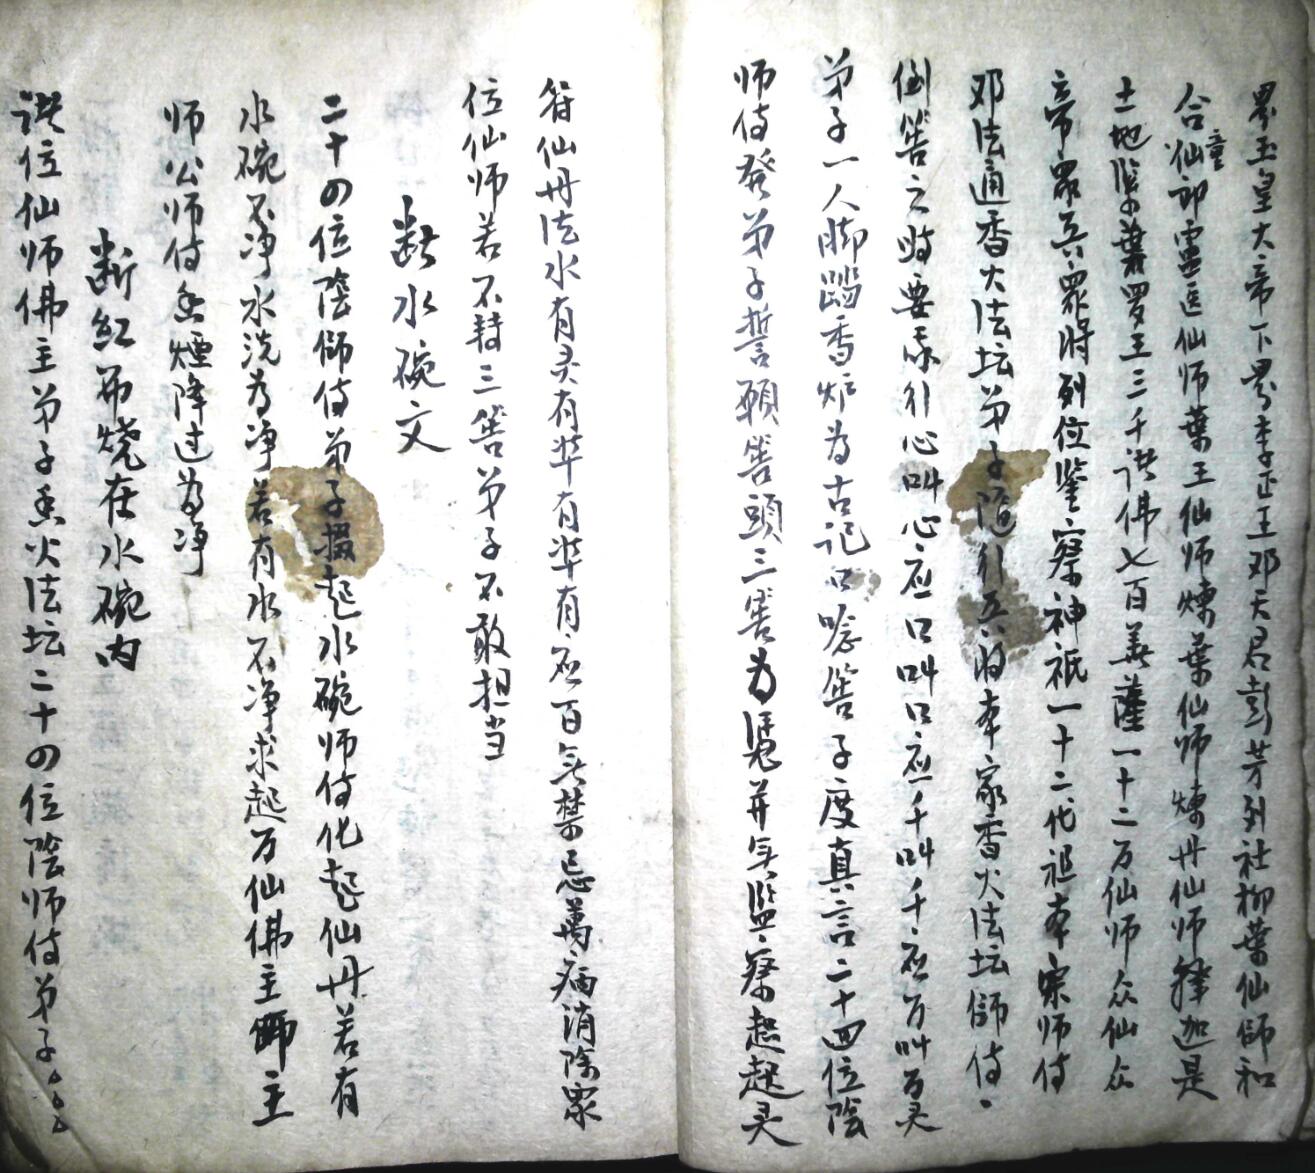 界玉皇大帝下界李正王邓天君彭芳列社柳葉仙師和
合仙童郎靈医仙师葉王仙师煉葉仙师煉丹仙师釋迦是
土地鉴葉罗王三千諸佛七百菩薩一十二万仙师众仙众
帝眾兵眾將列位鉴察神祇一十二代祖本宗师傅
邓法通香火法坛弟子隨引兵將本家香火法坛師侍
倒筶之時要亦引心叫心应口叫口應千叫千应万叫万灵
弟子一人脚踏香炉为古記口唸筶子度真言二十四位陰
师侍發弟子誓願筶頭三筶为憑并兵監察起起灵
符仙丹法水有灵有準有準有应百無禁忌萬病消除眾
位仙师若不转三筶弟子不敢担当
断水碗文
二十四位陰師侍弟子掇起水碗师侍化起仙丹若有
水碗不净水洗为净若有水不净求起万仙佛主師主
师公师侍香煙降过为净
断红布烧在水碗内
諸位仙师佛主弟子香火法坛二十四位陰师侍弟子